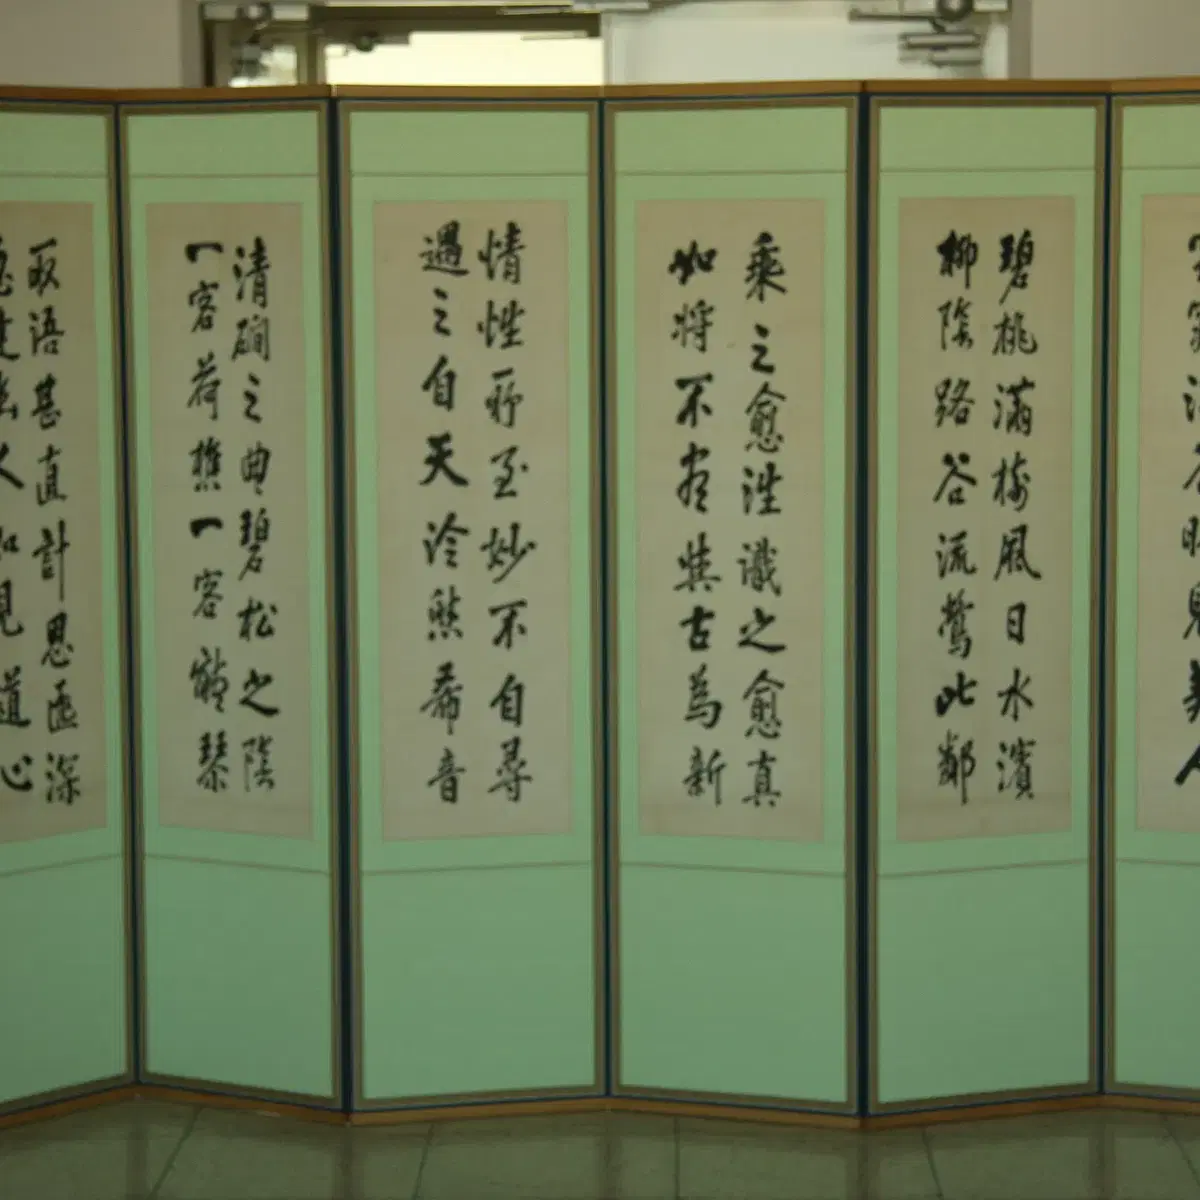 窈窕深谷時見美人
碧桃滿樹風日水濱
柳陰路谷流鶯比鄰
乘之愈往識之愈真
如將不盡與古為新
情性所至妙不自尋
遇之自天泠然希音
清磵之曲碧松之陰
一客荷樵一客聽琴
取語甚直計思匪深
忽逢幽人如見道心